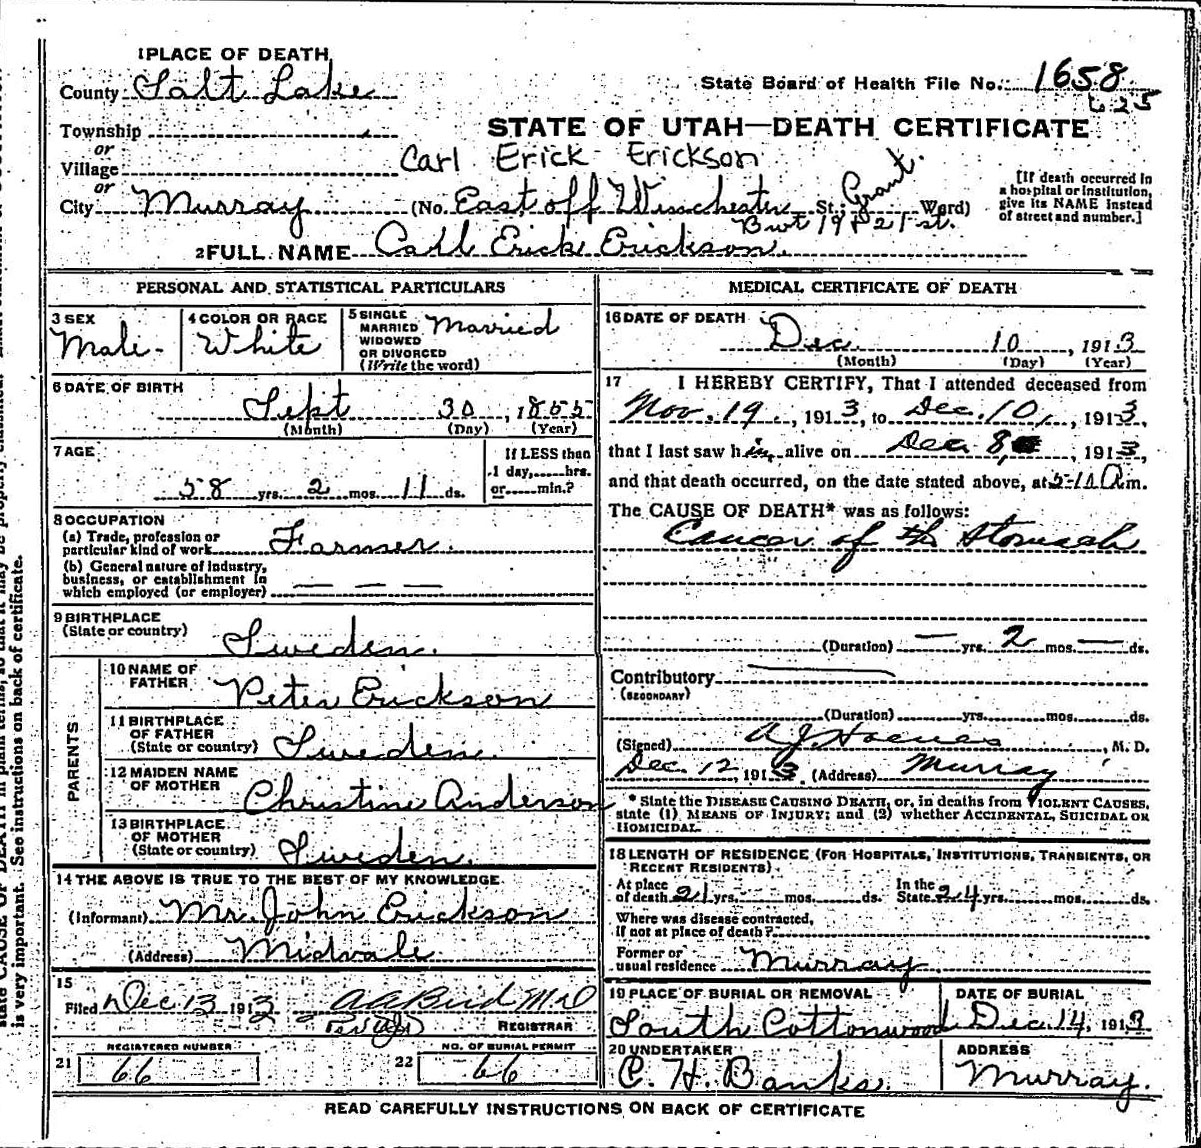 1 PLACE OF DEATH
County Salt Lake
State Board of Health File No. 1658
625
Township
or
STATE OF UTAH—DEATH CERTIFICATE
Village
Carl Erick Erickson
or
City Murray (No. East off Winchester St.; Grant. Ward)
Bwt 19 & 21 st.
[If death occurred in
a hospital or institution,
give its NAME instead
of street and number.]
2 FULL NAME Carl Erick Erickson.
PERSONAL AND STATISTICAL PARTICULARS
3 SEX
Male
4 COLOR OR RACE
White
5 SINGLE
MARRIED
WIDOWED
OR DIVORCED
(Write the word)
Married
6 DATE OF BIRTH
Sept 30, 1855
(Month) (Day) (Year)
7 AGE
58 yrs. 2 mos. 11 ds.
If LESS than
1 day, hrs.
or min.?
8 OCCUPATION
(a) Trade, profession or
particular kind of work Farmer.
(b) General nature of industry,
business, or establishment in
which employed (or employer)
9 BIRTHPLACE
(State or country) Sweden.
PARENTS
10 NAME OF
FATHER Peter Erickson
11 BIRTHPLACE
OF FATHER
(State or country) Sweden.
12 MAIDEN NAME
OF MOTHER Christine Anderson
13 BIRTHPLACE
OF MOTHER
(State or country) Sweden.
14 THE ABOVE IS TRUE TO THE BEST OF MY KNOWLEDGE
(Informant) Mr John Erickson
(Address) Midvale
15
Filed Dec 13 1913
REGISTRAR
REGISTERED NUMBER
21 66
NO. OF BURIAL PERMIT
22 66
MEDICAL CERTIFICATE OF DEATH
16 DATE OF DEATH
Dec. 10, 1913
(Month) (Day) (Year)
17 I HEREBY CERTIFY, That I attended deceased from
Nov. 19, 1913, to Dec. 10, 1913,
that I last saw him alive on Dec 8, 1913,
and that death occurred, on the date stated above, at 5-10 A m.
The CAUSE OF DEATH* was as follows:
Cancer of the Stomach
(Duration) — yrs. 2 mos. — ds.
Contributory
(SECONDARY)
(Duration) yrs. mos. ds.
(Signed) , M. D.
Dec. 12, 1913. (Address) Murray
* State the DISEASE CAUSING DEATH, or, in deaths from VIOLENT CAUSES,
state (1) MEANS OF INJURY; and (2) whether ACCIDENTAL, SUICIDAL OR
HOMICIDAL.
18 LENGTH OF RESIDENCE (FOR HOSPITALS, INSTITUTIONS, TRANSIENTS, OR
RECENT RESIDENTS).
At place
of death 21 yrs. mos. ds.
In the
State 24 yrs. mos. ds.
Where was disease contracted,
if not at place of death?
Former or
usual residence Murray
19 PLACE OF BURIAL OR REMOVAL
South Cottonwood
DATE OF BURIAL
Dec. 14, 1913
20 UNDERTAKER
C. H. Banks.
ADDRESS
Murray.
READ CAREFULLY INSTRUCTIONS ON BACK OF CERTIFICATE
is very important. See instructions on back of certificate.